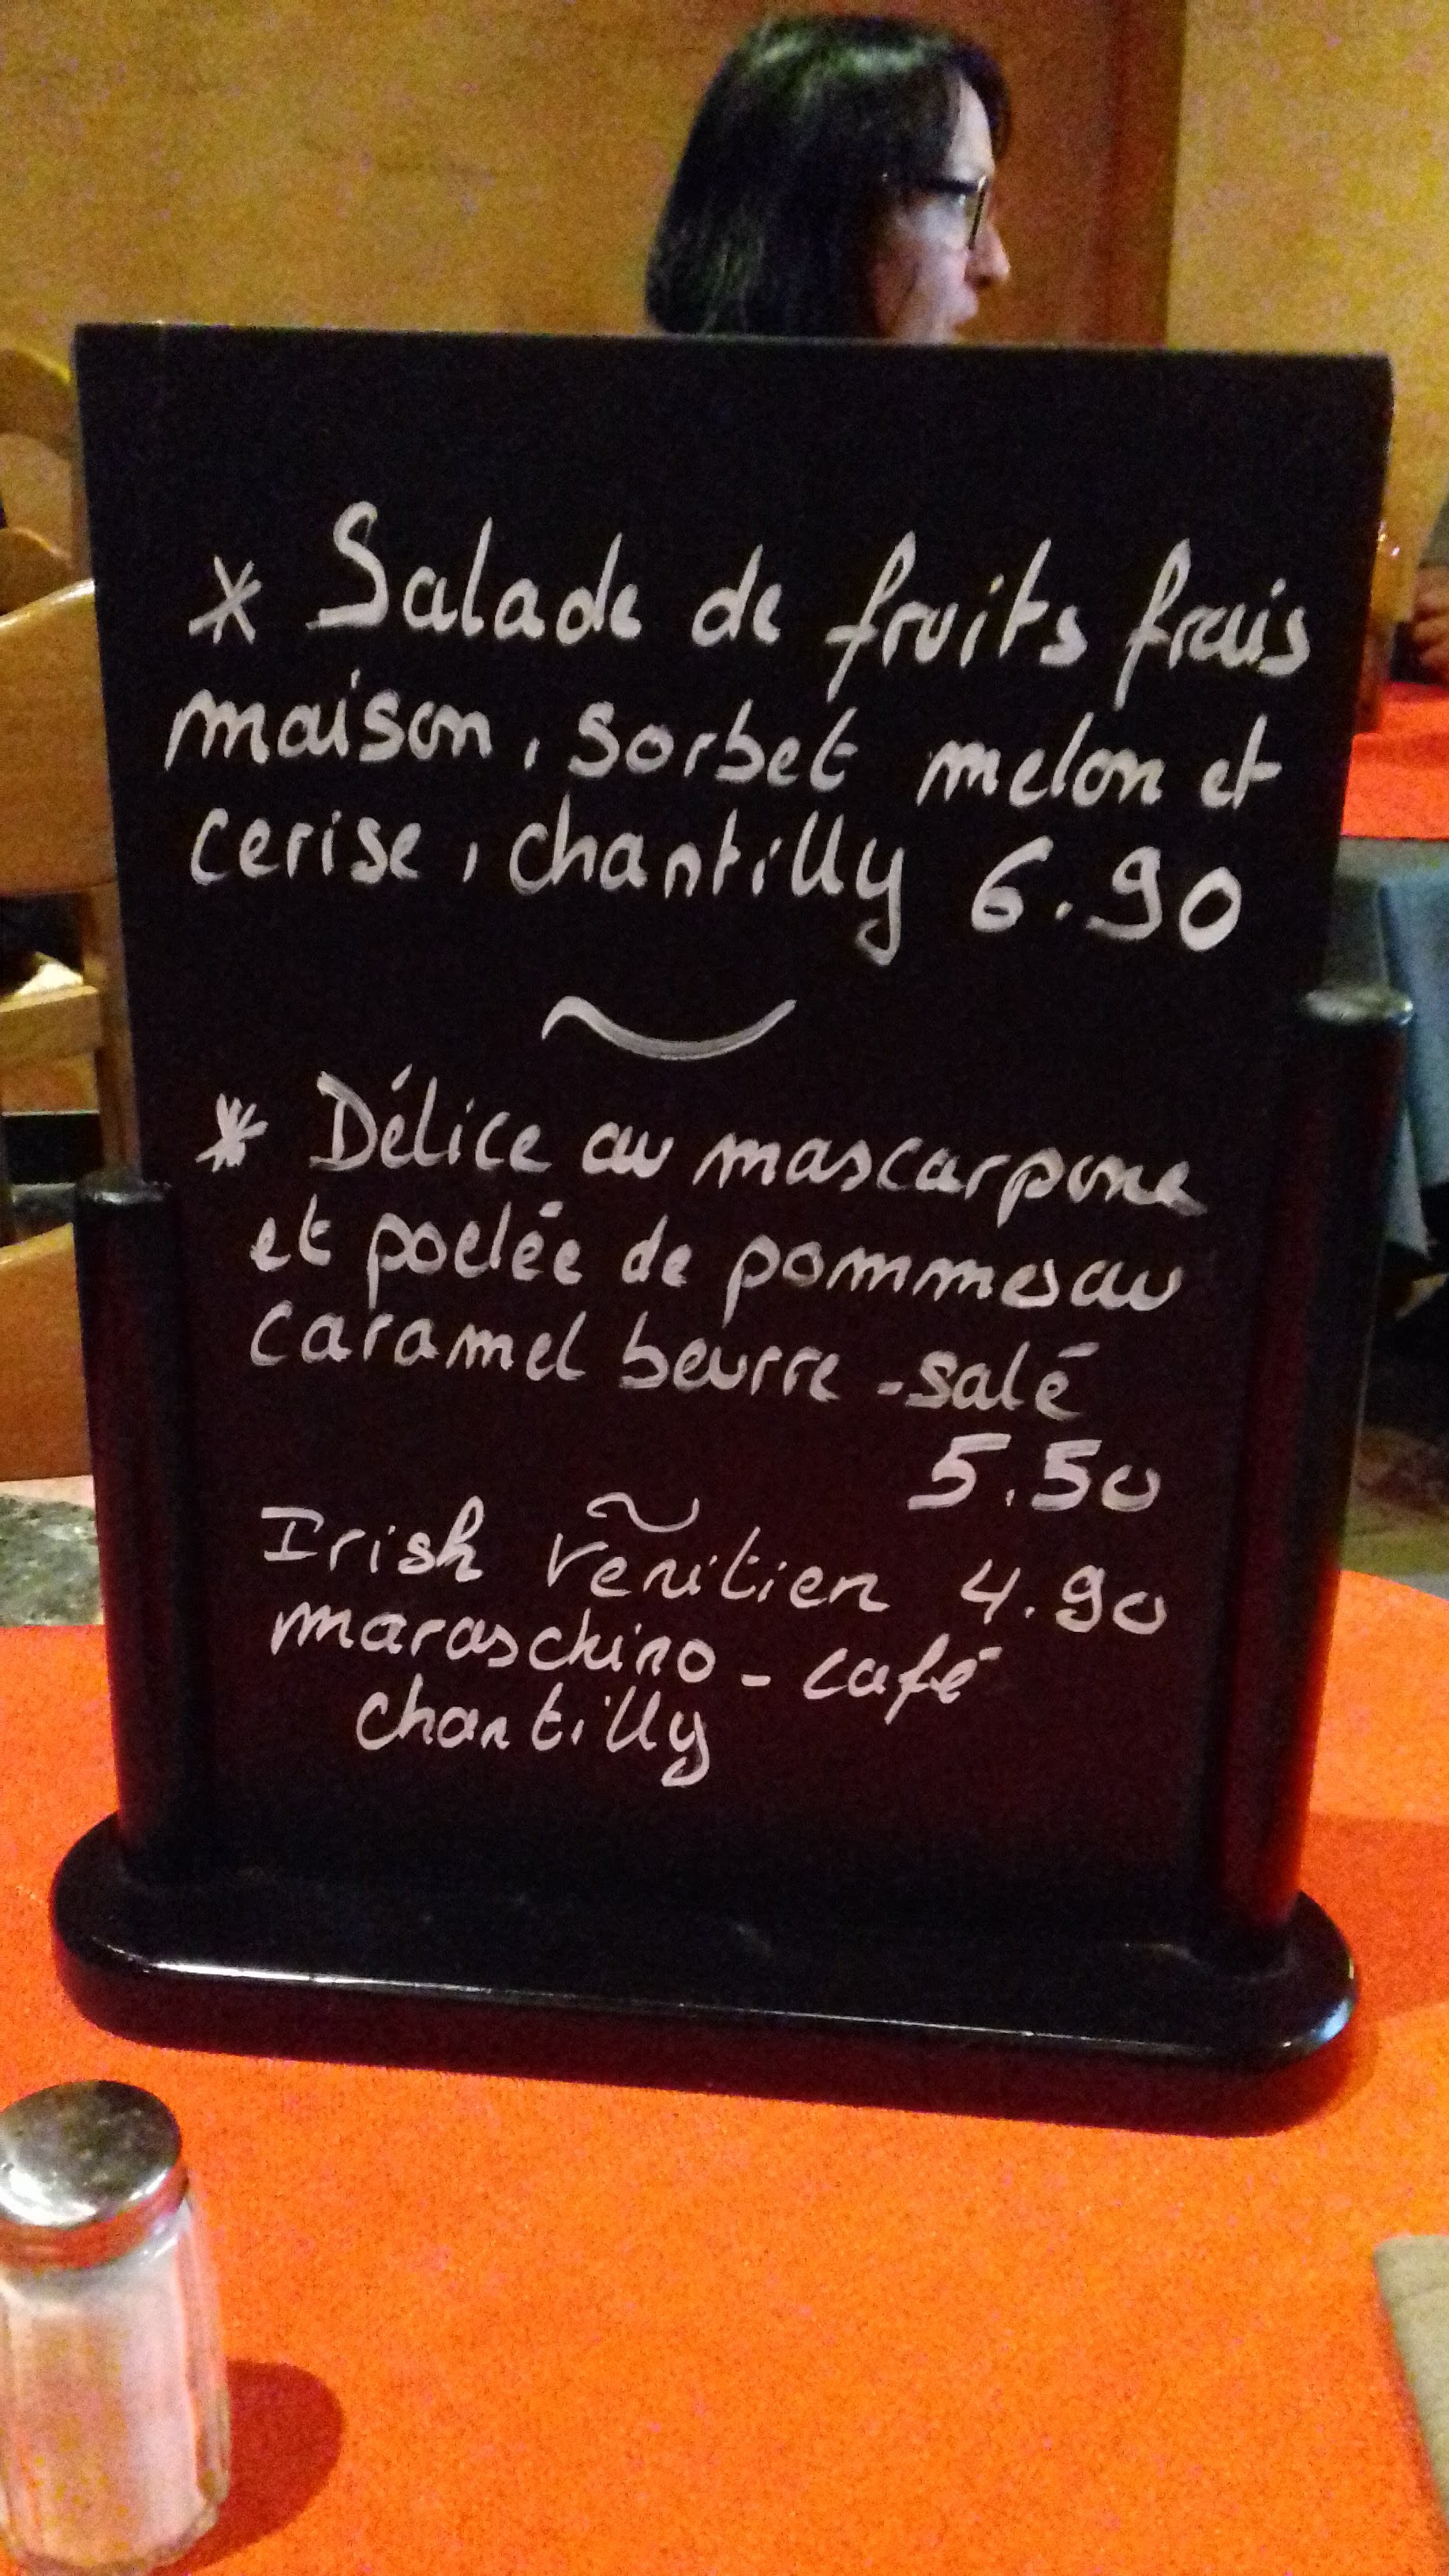 * Salade de fruits frais
maison, sorbet melon et
cerise, chantilly 6.90
* Délice au mascarpone
et poelée de pommes au
caramel beurre-salé
5.50
Irish Venitien 4.90
maraschino - café
chantilly